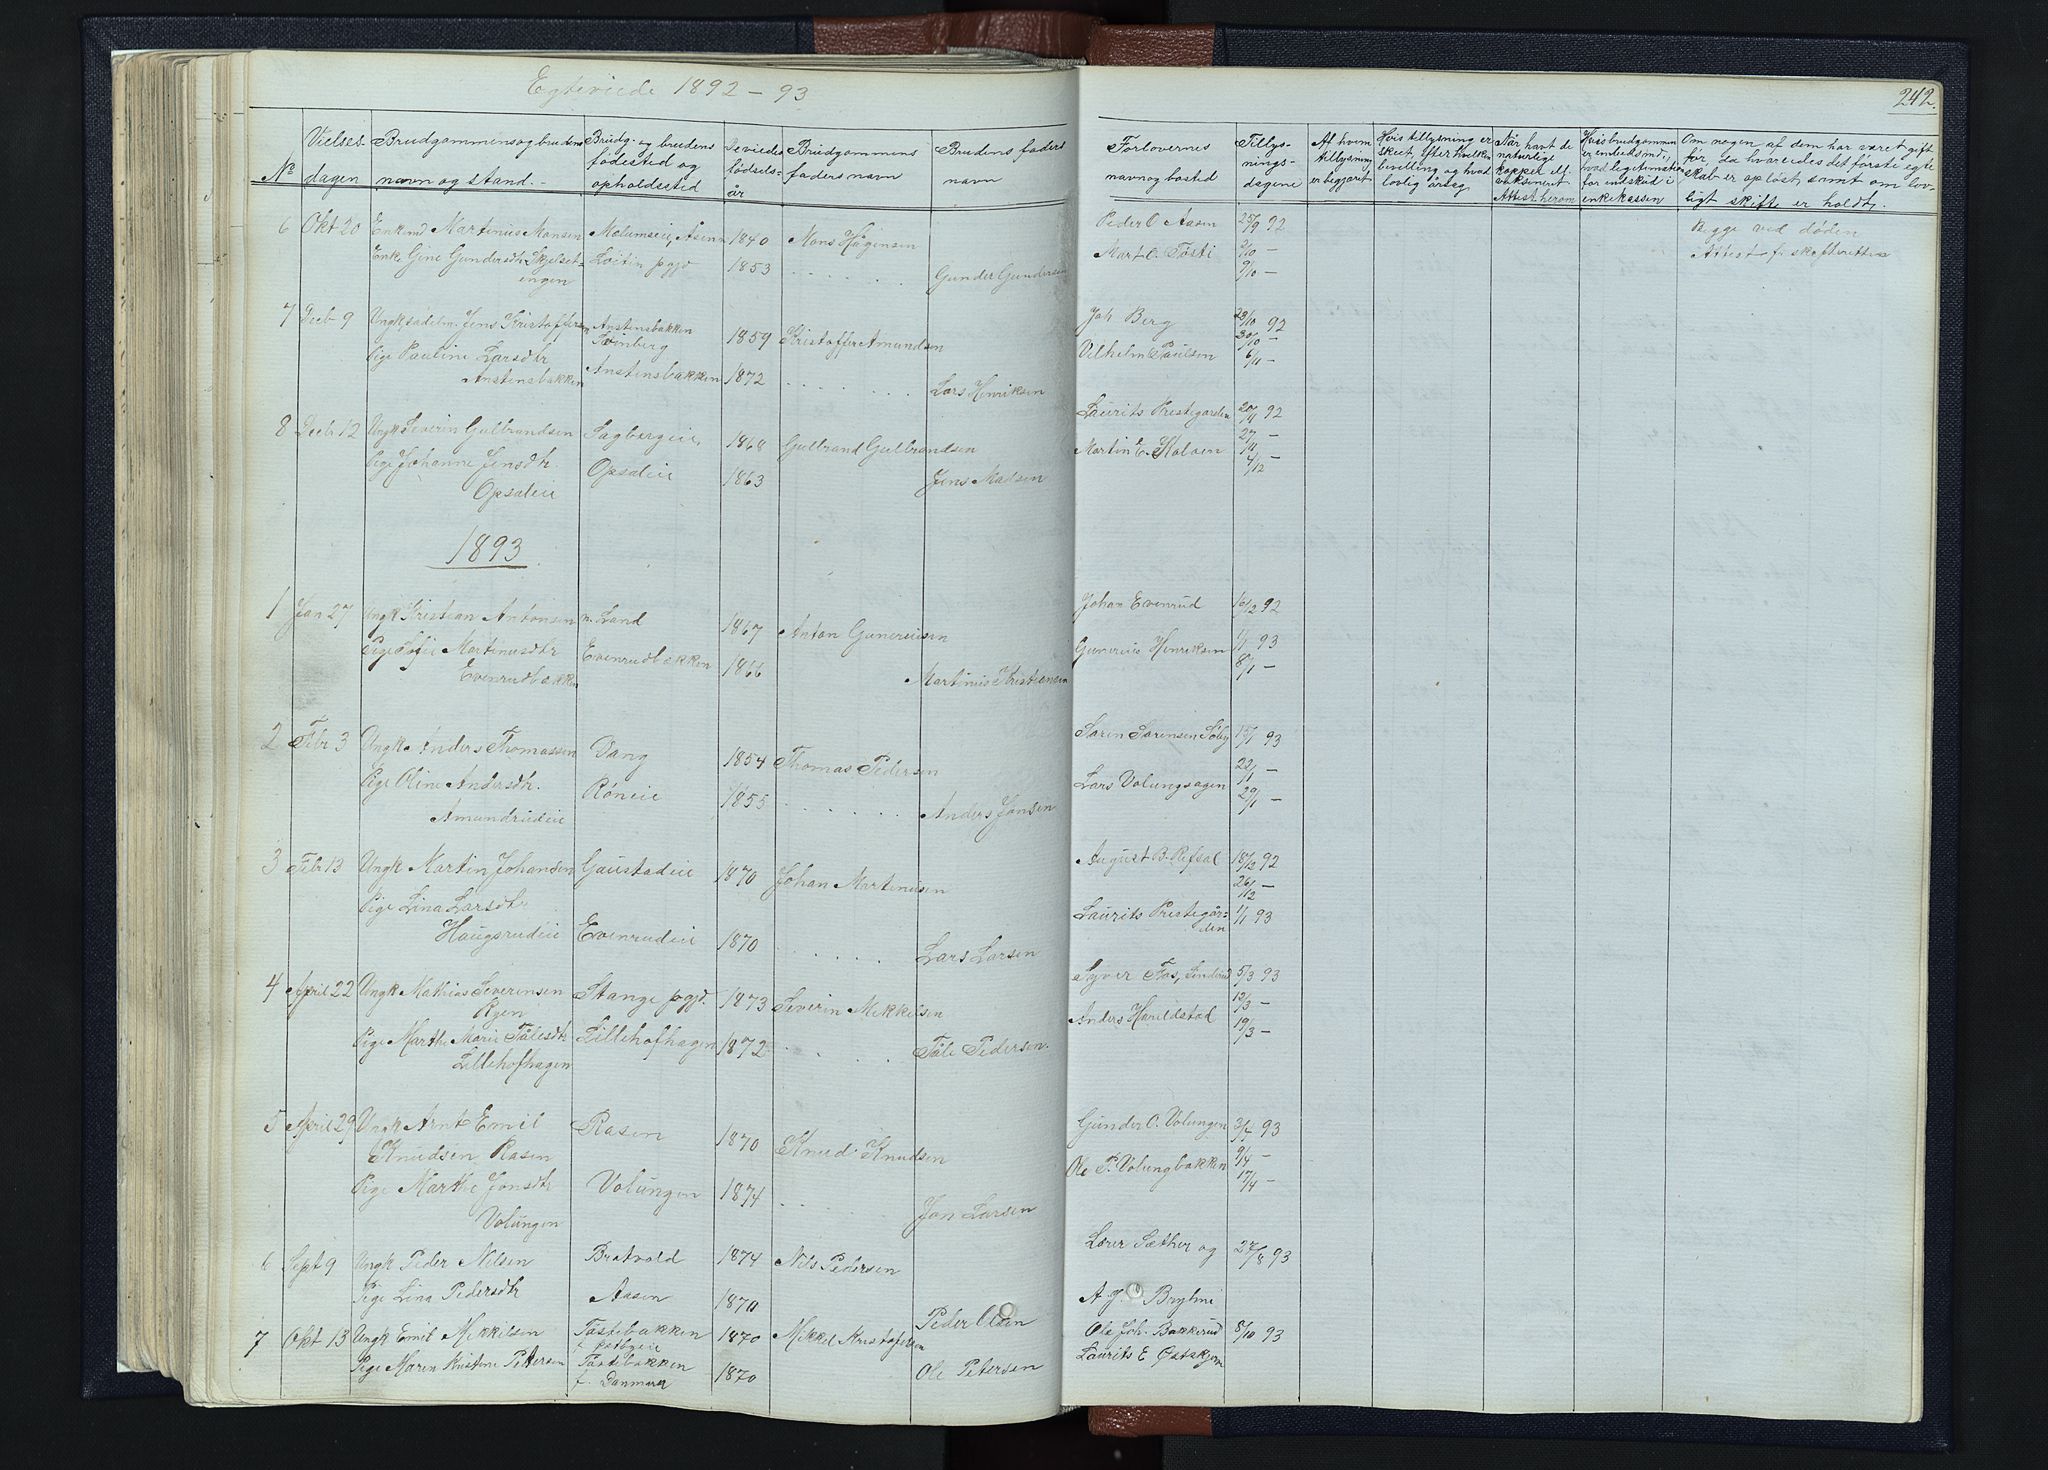 Egteviede 1892-93
242.
No
Vielses-dagen
Brudgommens og brudens navn og stand.
Brudg- og brudens fødested og opholdssted
De viedes fødselsår
Brudgommens faders navn
Brudens faders navn
Forlovernes navn og bosted
Tillysningsdagene
Af hvem tillysning er begjæret
Hvis tillysning er skeet, efter hvilken bevilling og hvad lovlig årsag
Når havt de naturlige kopper ell. vaksineret Attest herom
Hvis brudgommen er enkemd, hvad legitimation for indskud i enkekassen
Om nogen af dem har været gift før, da hvorledes det første egteskab er opløst, samt om lovligt skifte er holdt.
6 Okt 20 Enkmd Martinus Monsen 1840 Mons Hågensen Peder O Aasen 25/9 92 Begge ved døden
Enke Gine Gundersdtr Skjelset- Løitin pgjd 1853 Mart. O. Tøsti 2/10 - Attest fr skifteretten
engen Gunder Gundersen 9/10 -
7 Decb 9 Ungk sadelm. Jens Kristoffersen Anstensbakken Joh Berg 23/10 92
1859 Kristoffer Amundsen 30/10 -
Pige Pauline Larsdtr Vilhelm Paulsen 6/11 -
Anstensbakken Anstensbakken 1872 Lars Henriksen
8 Decb 12 Ungk Severin Gulbrandsen Sagbergeie 1868 Gulbrand Gulbrandsen Laurits Prestegarden 20/11 92
Pige Johanne Jensdtr. Opsaleie 1863 Martin E. Koloen 27/11 -
Opsaleie Jens Matsen 4/12 -
1893
1 Jan 27 Ungk Kristian Antonsen n. Land 1867 Anton Guneriusen Johan Evenrud 16/12 92
Pige Sofie Martinusdtr Evenrudbakken 1866 Gunerius Henriksen 1/1 93
Evenrudbakken Martinus Kristiansen 8/1 -
2 Febr 3 Ungk Anders Thomassen Vang 1854 Thomas Pedersen Søren Sørensen Søby 15/1 93
Pige Oline Andersdtr. Røneie 1855 22/1 -
Amundrudeie Anders Jonsen Lars Volungsagen 29/1 -
3 Febr 13 Ungk Martin Johansen Gaustadeie 1870 Johan Martinusen August B. Refsal 18/12 92
Pige Lina Larsdtr 26/12 -
Haugsrudeie Evenrudeie 1870 Lars Larsen Laurits Prestegår- 1/1 93
den
4 April 22 Ungk Mathias Severinsen Stange pgjd. 1873 Severin Mikkelsen Syver Fos, 5/3 93
12/3 -
Pige Marthe Marie Tålesdtr Lillehofhagen 1872 Tåle Pedersen. Anders Harildstad 19/3 -
Lillehofhagen
5 April 29 Ungk Arnt Emil Rasen 1870 Knud Knudsen Gunder O. Volungen 3/4 93
Knudsen Rasen 9/4 -
Pige Marthe Jonsdtr Volungen 1874 Jon Larsen Ole P. Volungbakken 17/4 -
Volungen
6 Sept 9 Ungk Peder Nilsen Bratvold 1874 Nils Pedersen Lærer Sæther og 27/8 93
Pige Lina Pedersdtr Aasen 1870 Peder Olsen A. J. Bryhni
7 Okt 13 Ungk Emil Mikkelsen Tøstebakken 1870 Mikkel Kristofersen Ole Joh. Bakkerud 8/10 93
Pige Maren Kristine Petersen Tøstebakken f. Danmark 1870 Ole Petersen Laurits E Østskjørn